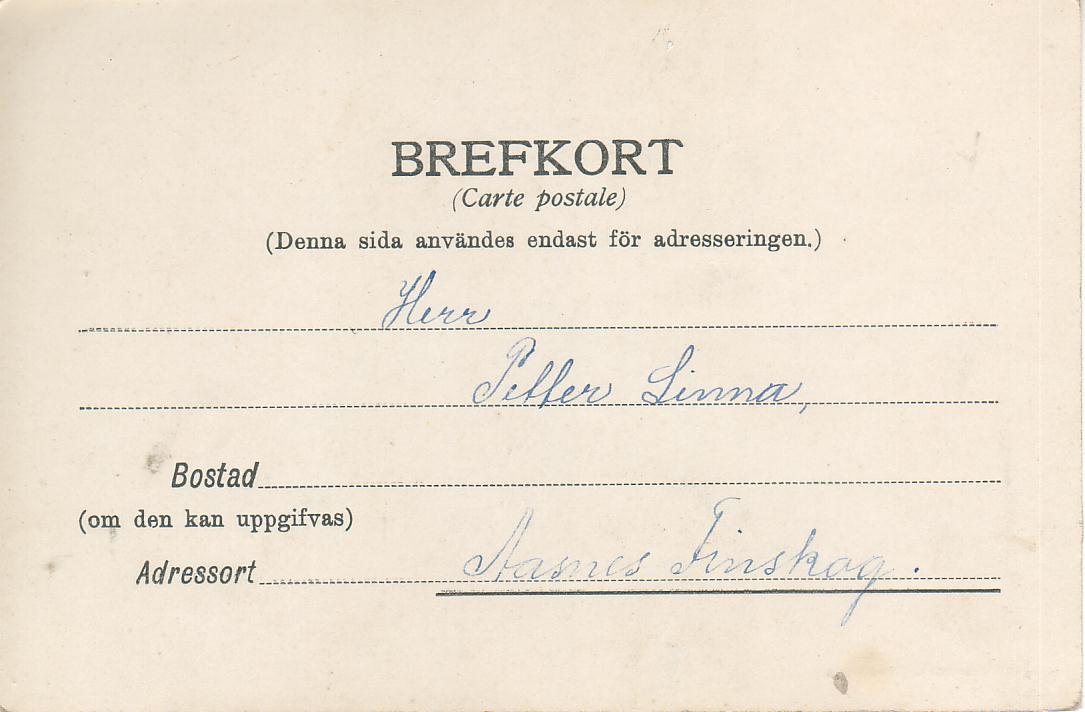 BREFKORT
(Carte postale)
(Denna sida användes endast för adresseringen.)
Herr
Petter Linna,
Bostad
(om den kan uppgifvas)
Adressort Aasnes Finskog.